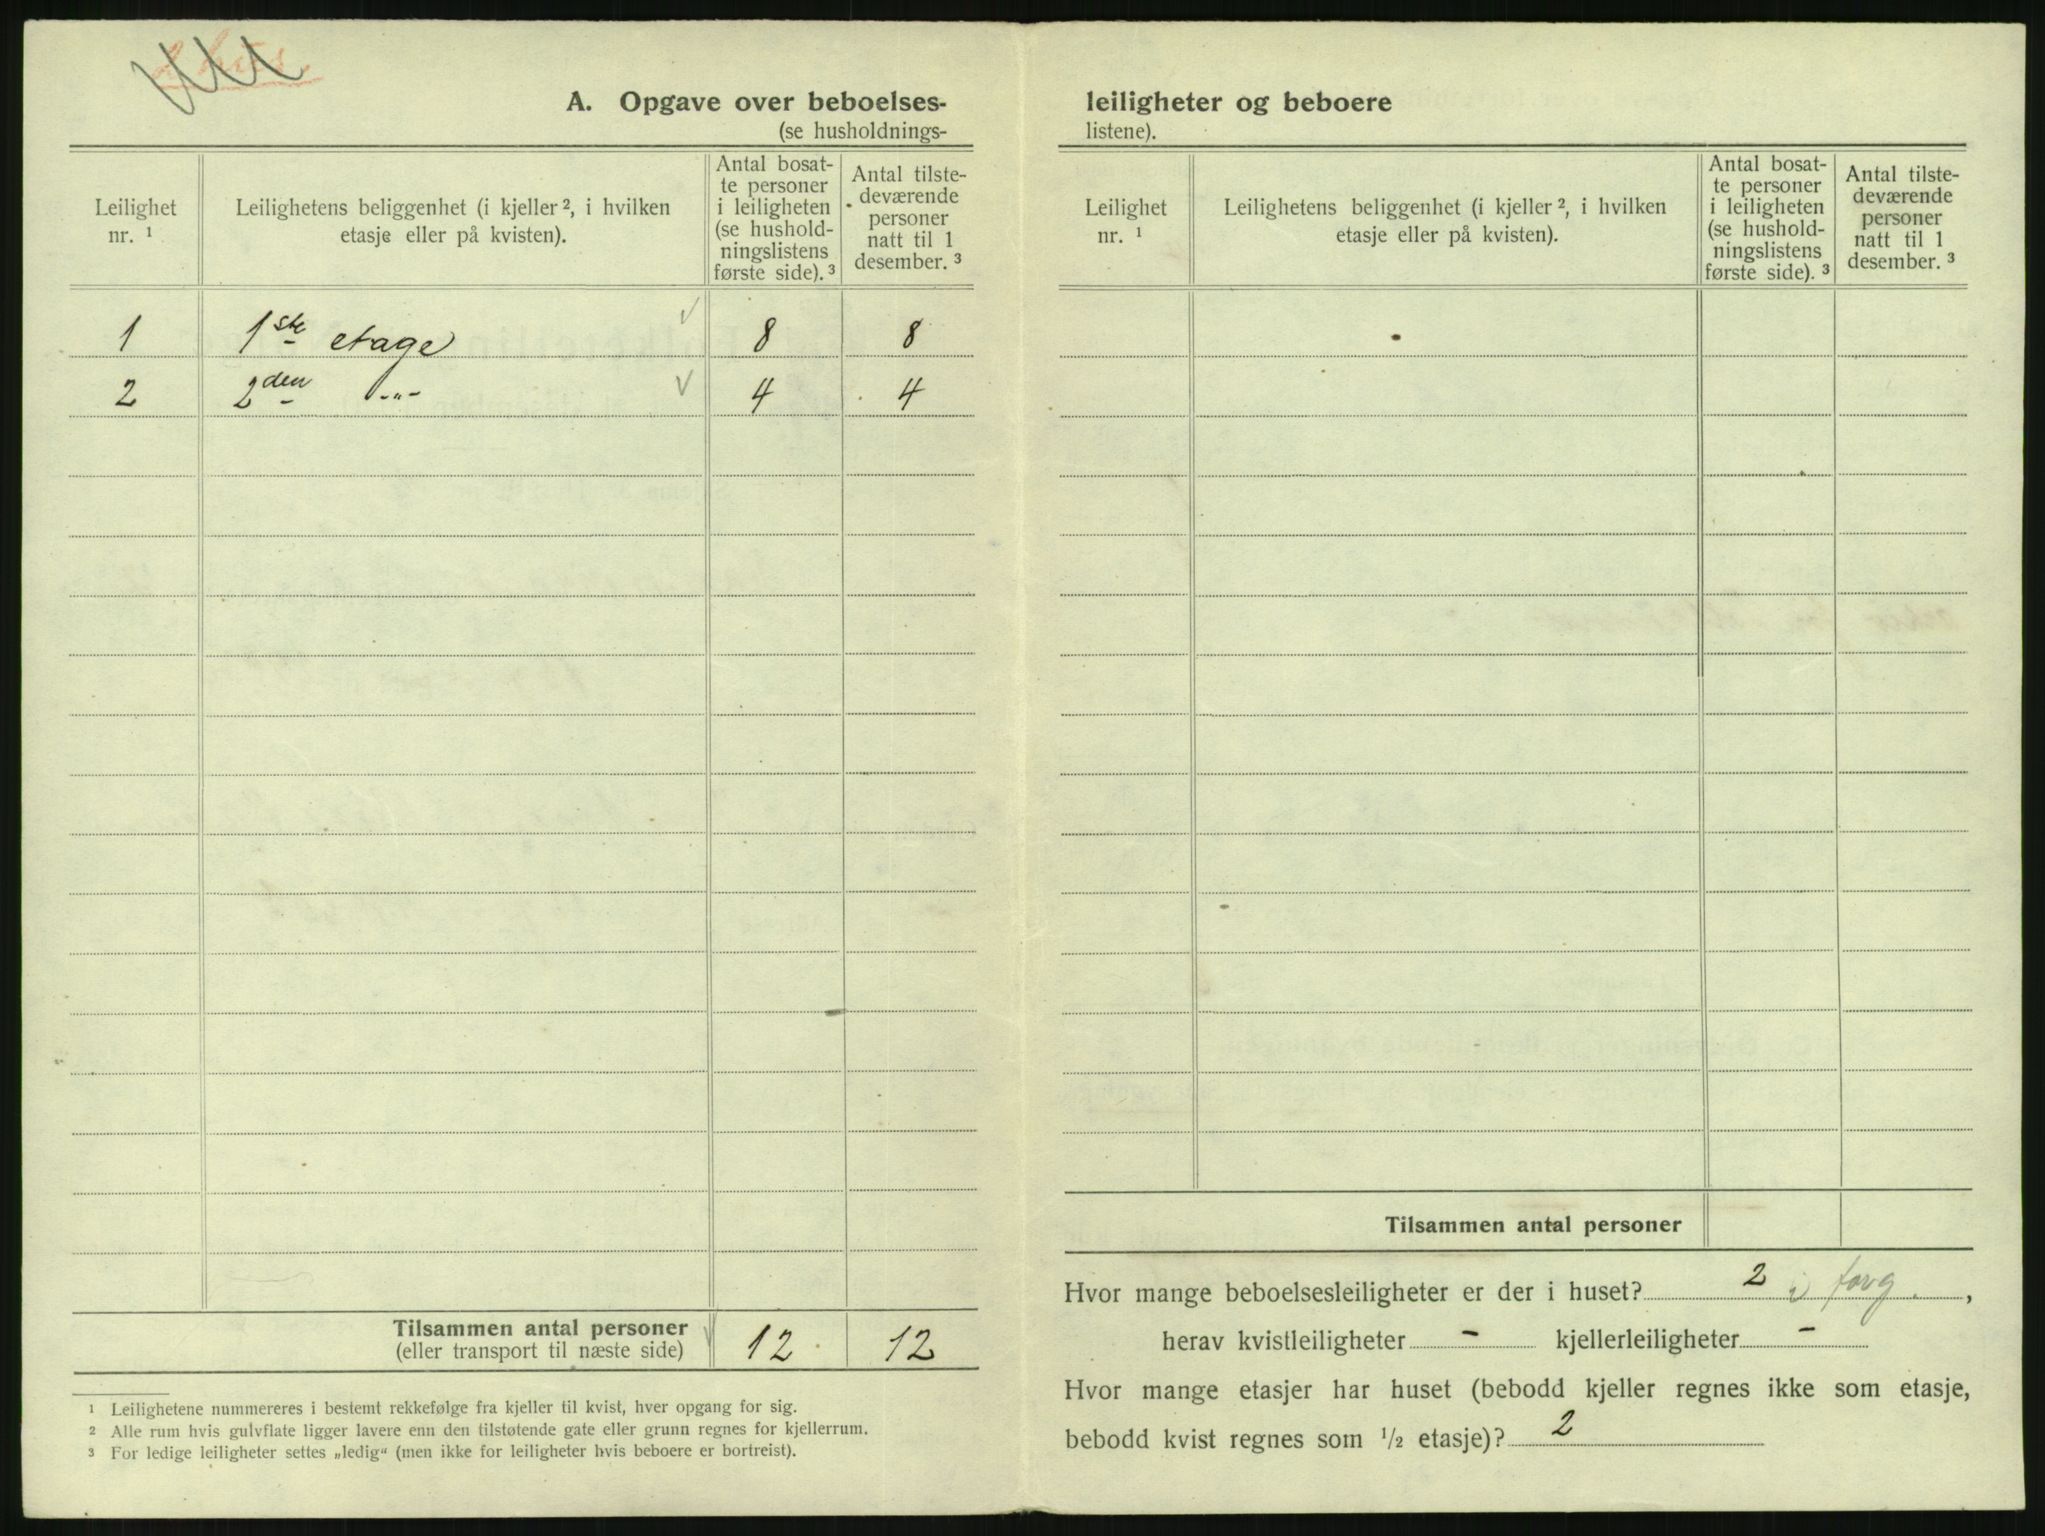 A. Opgave over beboelses-
(se husholdnings-
Leilighet nr. 1
Leilighetens beliggenhet (i kjeller 2, i hvilken
etasje eller på kvisten).
Antal bosat-
te personer
i leiligheten
(se hushold-
ningslistens
første side). 3
Antal tilste-
deværende
personer
natt til 1
desember. 3
1 1ste etage 8 8
2 2den -"- 4 4
Tilsammen antal personer 12 12
(eller transport til næste side)
1 Leilighetene nummereres i bestemt rekkefølge fra kjeller til kvist, hver opgang for sig.
2 Alle rum hvis gulvflate ligger lavere enn den tilstøtende gate eller grunn regnes for kjellerrum.
3 For ledige leiligheter settes „ledig“ (men ikke for leiligheter hvis beboere er bortreist).
leiligheter og beboere
listene).
Leilighet nr. 1
Leilighetens beliggenhet (i kjeller 2, i hvilken
etasje eller på kvisten).
Antal bosat-
te personer
i leiligheten
(se hushold-
ningslistens
første side). 3
Antal tilste-
deværende
personer
natt til 1
desember. 3
Tilsammen antal personer
Hvor mange beboelsesleiligheter er der i huset? 2 i forg.,
herav kvistleiligheter - kjellerleiligheter -
Hvor mange etasjer har huset (bebodd kjeller regnes ikke som etasje,
bebodd kvist regnes som 1/2 etasje)? 2